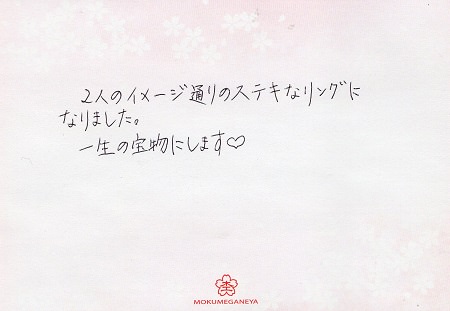 2人のイメージ通りのステキなリングに
なりました。
一生の宝物にします♡
MOKUMEGANEYA